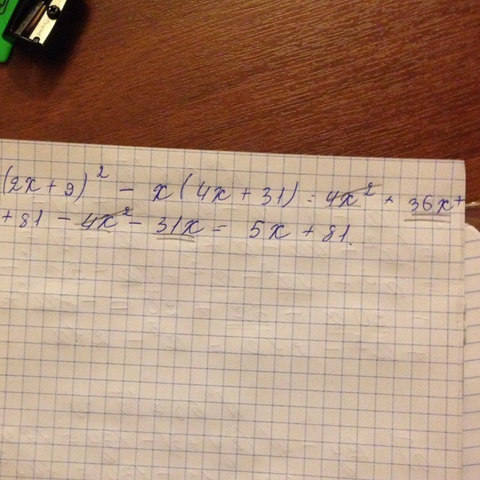 (2x+9)² - x(4x+31) = 4x² + 36x +
+ 81 - 4x² - 31x = 5x + 81.